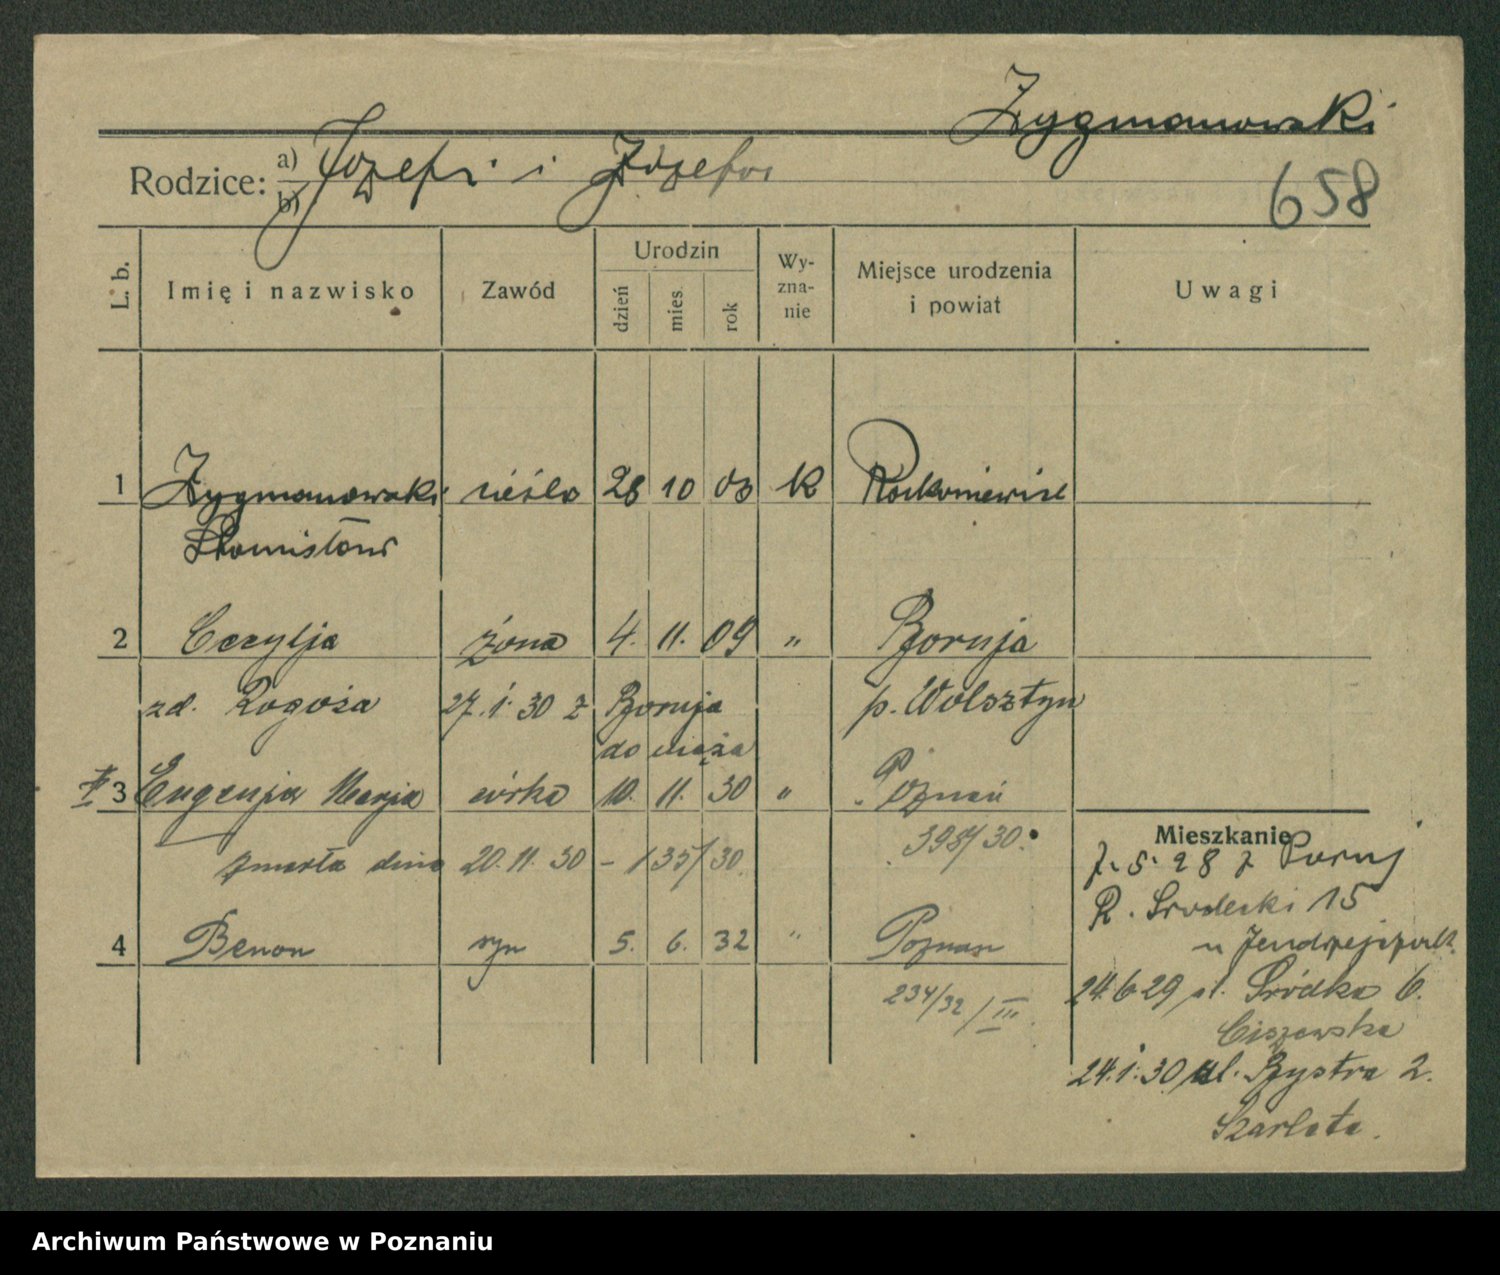 Zygmanowski
Rodzice: a) Józef i Józefa
b)
658
L. b.
Imię i nazwisko
Zawód
Urodzin
dzień
mies.
rok
Wy-
zna-
nie
Miejsce urodzenia
i powiat
Uwagi
1 Zygmanowski cieśla 28 10 03 K
Stanisław
2 Cecylja żona 4. 11. 09 " Boruja
zd. Rogoża 27.1.30 z Boruja p. Wolsztyn
do męża
3 Eugenja Marja córka 10. 11. 30 " Poznań
398/30.
zmarła dnia 20.11.30 – 135/30.
4 Benon syn 5. 6. 32 " Poznań
234/32/III
Mieszkanie
7.5.28 z
R. Środecki 15
u
24.6.29 ul. Śródka 6.
Ciszewska
24.1.30 ul. Bystra 2.
Szarlata.
Archiwum Państwowe w Poznaniu